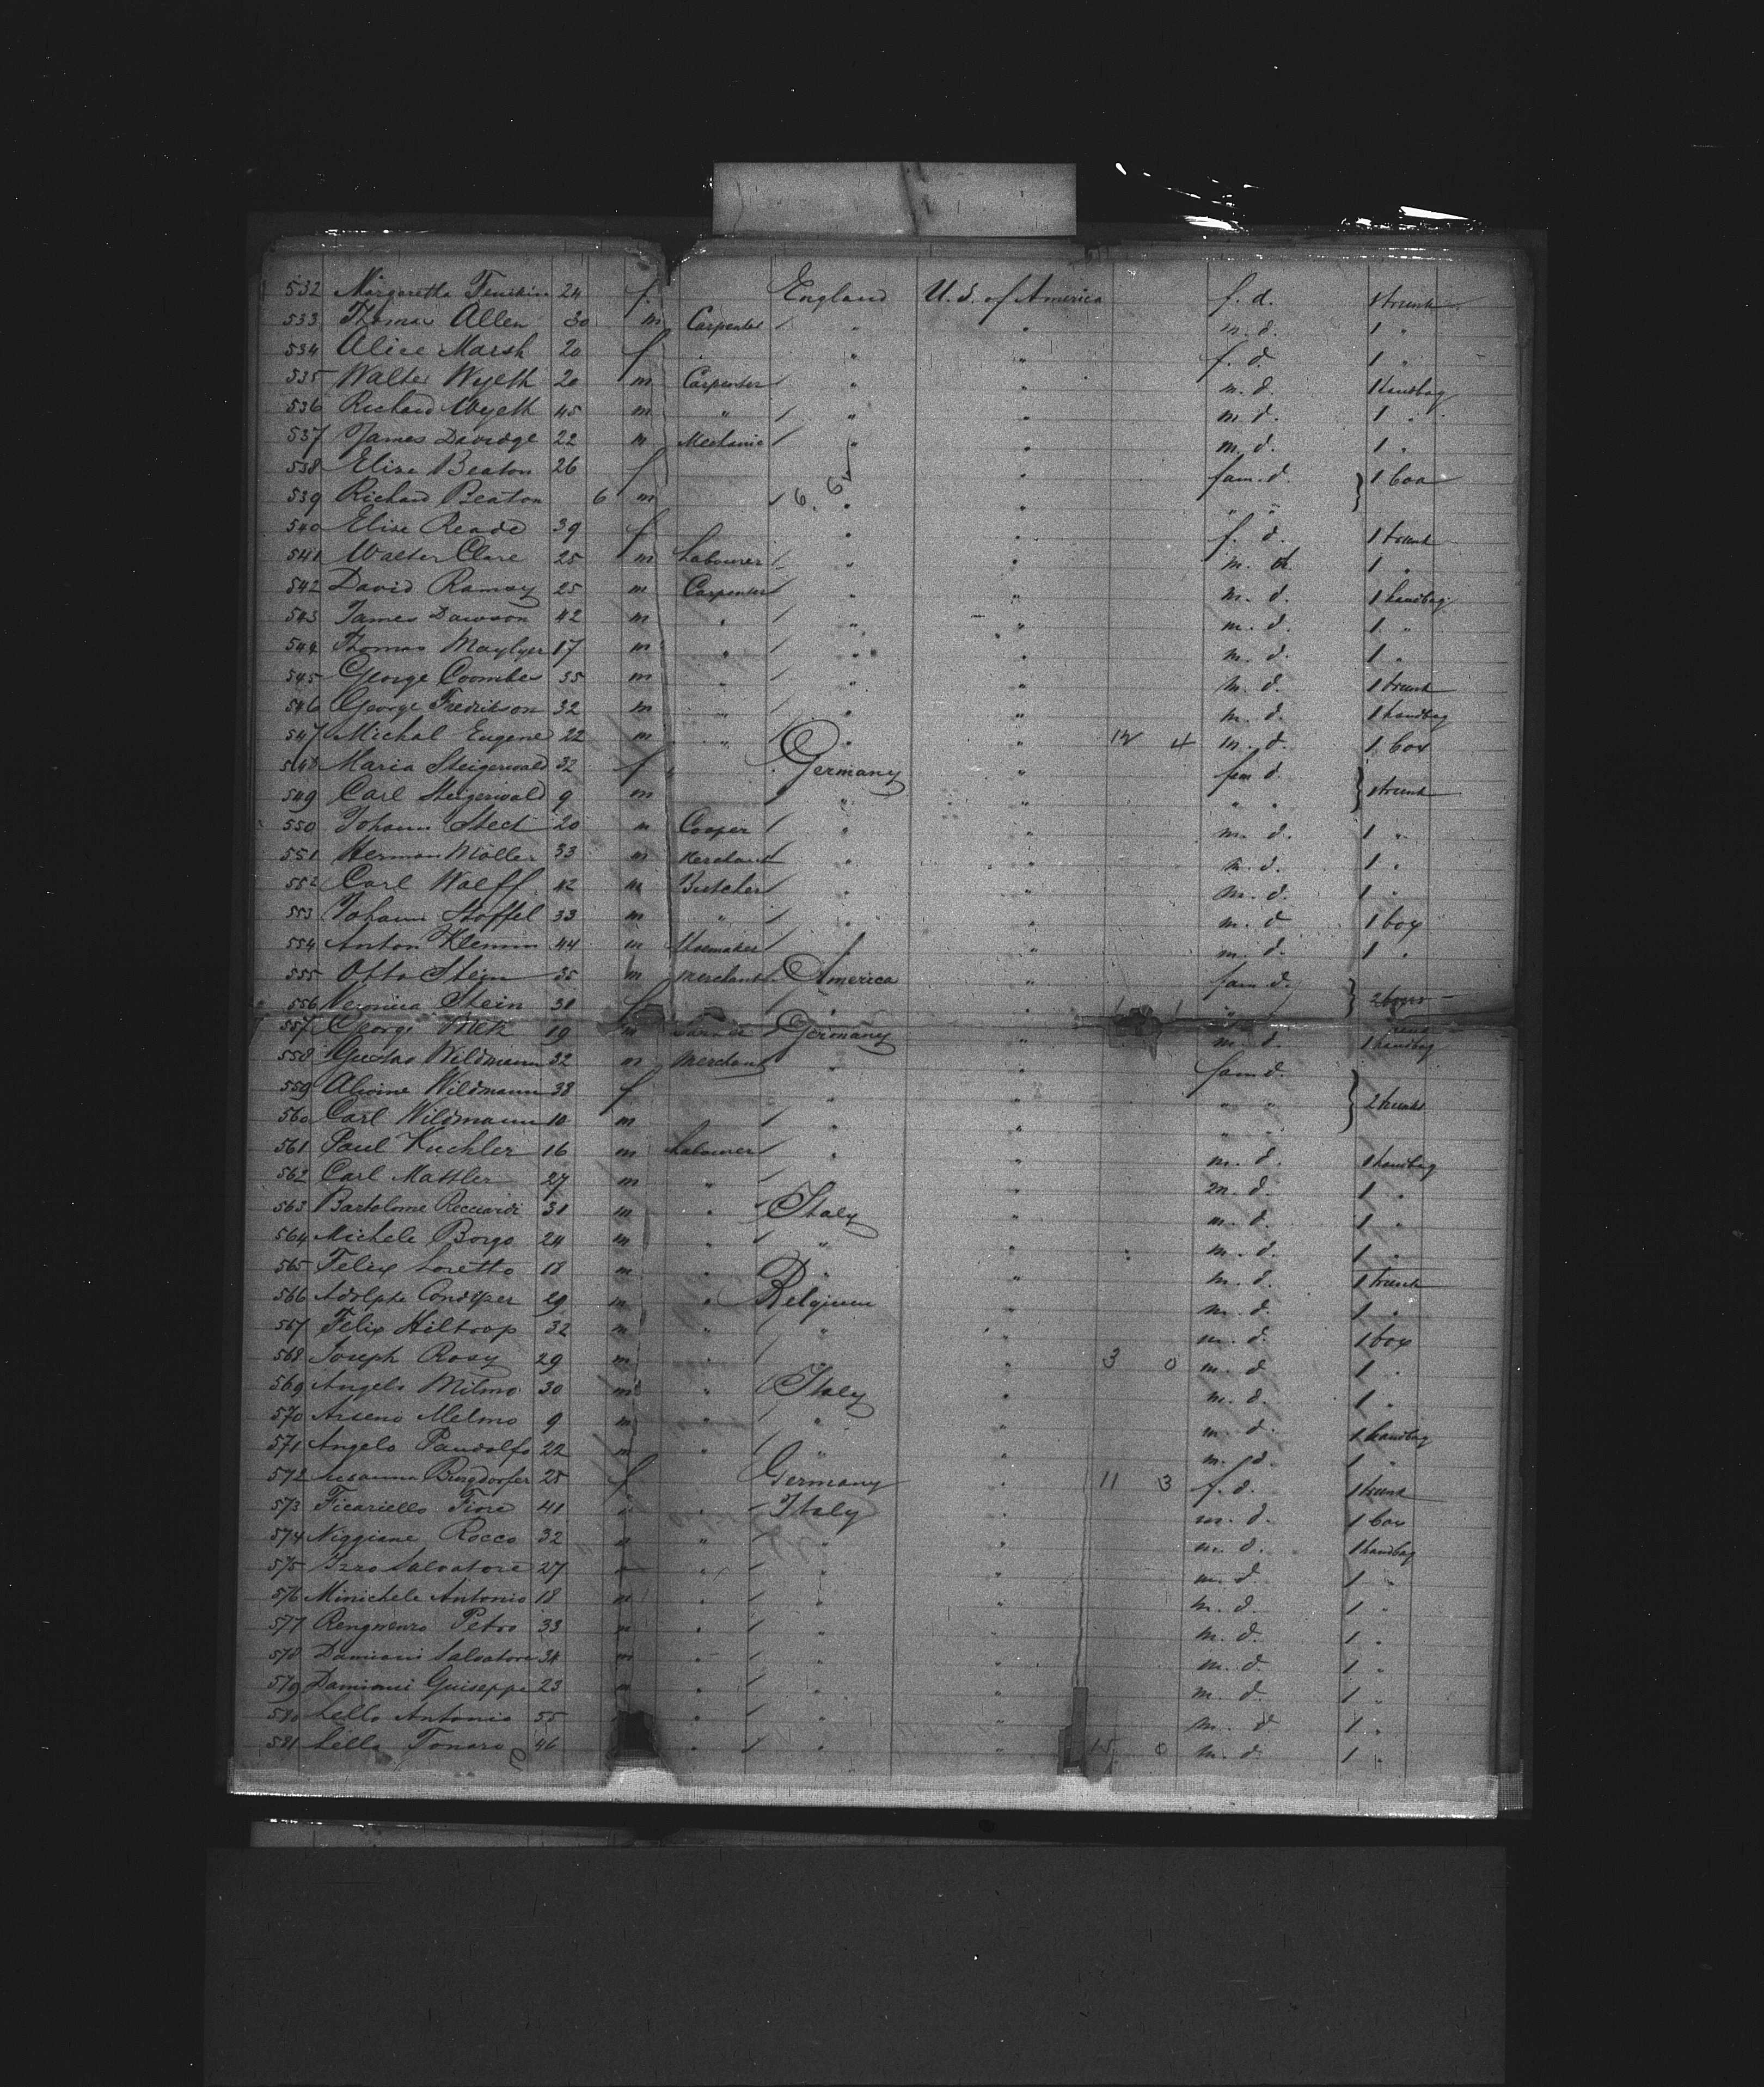 532 Margaretta 24 f. England U. S. of America f. d. 1 trunk
533 Thomas Allen 30 m Carpenter / " " m. d. 1 "
534 Alice Marsh 20 f " " f. d. 1 "
535 Walter Wyeth 20 m Carpenter / " " m. d. 1 handbag
536 Richard Wyeth 45 m " / " " m. d. 1 "
537 James Davidge 22 m Mechanic / " " m. d. 1 "
538 Elise Beaton 26 f " " fam. d. } 1 box
539 Richard Beaton 6 m / 6. 6 " " " "
540 Elise Reade 39 f " " f. d. 1 trunk
541 Walter Clare 25 m Labourer / " " m. d. 1 "
542 David Ramsy 25 m Carpenter / " " m. d. 1 handbag
543 James Dawson 42 m " / " " m. d. 1 "
544 Thomas 17 m " / " " m. d. 1 "
545 George Coombes 35 m " / " " m. d. 1 trunk
546 George Fredrikson 32 m " / " " m. d. 1 handbag
547 Michal Eugene 22 m " / " " 12 4 m. d. 1 box
548 Maria Steigerwald 32 f Germany " fam d. } 1 trunk
549 Carl Steigerwald 9 m / " " " "
550 Johann Stect 20 m Cooper / " " m. d. 1 "
551 Herman Möller 33 m Merchant / " " m. d. 1 "
552 Carl Wolff 42 m Butcher / " " m. d. 1 "
553 Johann Stoffel 33 m " / " " m. d 1 box
554 Anton Klemm 44 m Shoemaker / " " m. d. 1 "
555 Otto Stein 35 m Merchant America " fam d. } 2 boxes
556 Veronica Stein 31 f / " " 1 1 " "
557 George 19 m Germany " m. d. 1 handbag
558 Gustav Wildmann 32 m Merchant " " fam d. } 2 trunks
559 Alwine Wildmann 38 f " " " "
560 Carl Wildmann 10 m / " " " "
561 Paul Kuchler 16 m Labourer / " " m. d. 1 handbag
562 Carl Mattler 27 m " / " " m. d. 1 "
563 Bartolome Recciardi 31 m " / Italy " m. d. 1 "
564 Michele Borgo 24 m " / " " m. d. 1 "
565 Felix Loretto 18 m " / " " m. d. 1 trunk
566 Adolphe 29 m " Belgium " m. d. 1 "
567 Felix Hiltrop 32 m " / " " m. d. 1 box
568 Joseph Rosy 29 m " / " " 3 0 m. d 1 "
569 Angelo Milmo 30 m " / Italy " m. d. 1 "
570 Arseno Melmo 9 m " / " " m. d. 1 handbag
571 Angelo Pandolfo 22 m " / " " m. d. 1 "
572 Susanna Burgdorfer 25 f Germany " 11 3 f. d. 1 trunk
573 Ficariello Fiore 41 " " / Italy " m. d. 1 box
574 Niggiane Rocco 32 " " / " " m. d. 1 handbag
575 Izzo Salvatore 27 " " / " " m. d 1 "
576 Minichele Antonio 18 m " / " " m. d. 1 "
577 Petro 33 m " / " " m. d. 1 "
578 Damiani Salvatore 34 m " / " " m. d. 1 "
579 Damiani Guiseppe 23 m " / " " m. d. 1 "
580 Lello Antonio 55 " " " m. d 1 "
581 Lello Tonaro 46 " / " " 15 0 m. d. 1 "